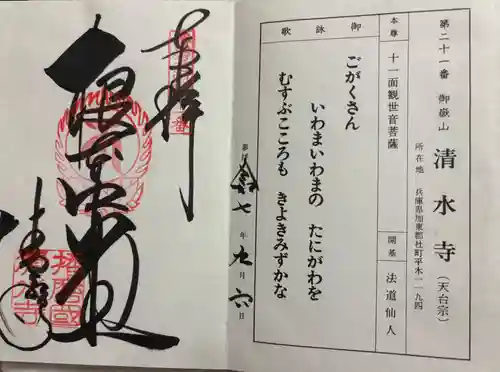 第二十一番 御嶽山 清水寺(天台宗)
所在地 兵庫県加東郡社町平木一一九四
本尊 十一面観世音菩薩
開基 法道仙人
御詠歌
ごがくさん
いわまいわまの たにがわを
むすぶこころも きよきみずかな
七年九月六日
奉拝
根本中堂
清水寺
播磨国清水寺